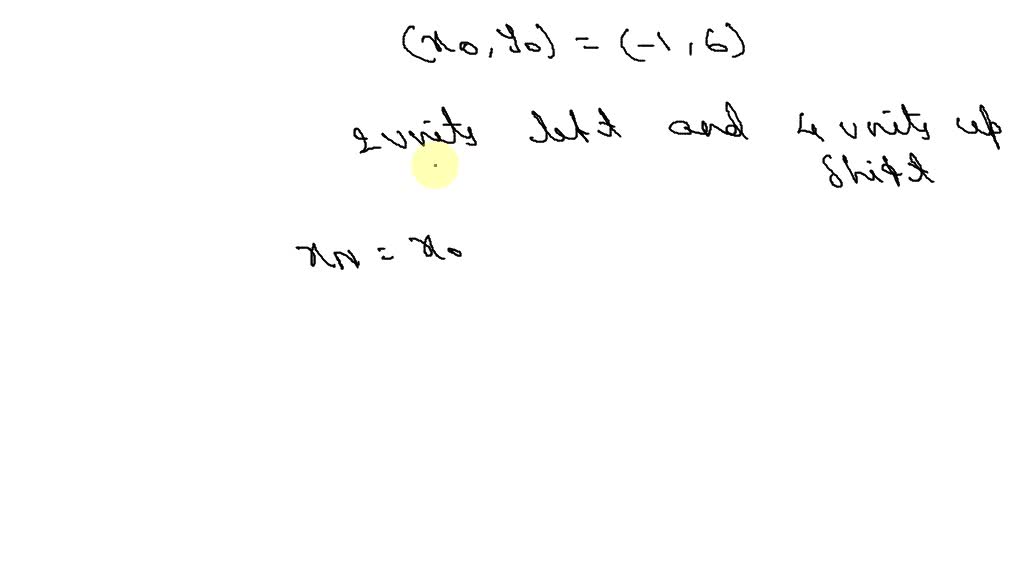 (x₀, y₀) = (-1, 6)
2 units left and 4 units up
shift
x_N = x₀